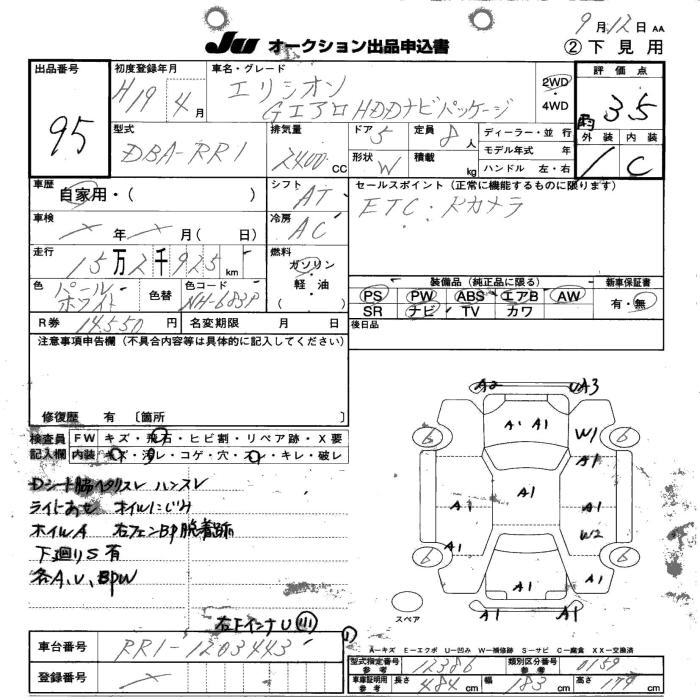 9月12日 AA
JU オークション出品申込書
② 下見用
出品番号
95
初度登録年月
H19年4月
車名・グレード
エリシオン
Gエアロ HDDナビパッケージ
2WD
・4WD
評価点
3.5
外装 内装
C
型式
DBA-RR1
排気量
2400 CC
ドア 5
定員 8人
形状 W
積載 kg
ディーラー・並行
モデル年式 年
ハンドル 左・右
車歴
自家用・( )
シフト AT
セールスポイント(正常に機能するものに限ります)
ETC・Kカメラ
車検
年 月( 日)
冷房 AC
走行
15万2千925km
燃料
ガソリン
・軽油
( )
色
パール
ホワイト
色替
色コード
NH-683P
装備品(純正品に限る)
PS PW ABS エアB AW
SR ナビ TV カワ
新車保証書
有・無
R券 14,550円
名変期限 月 日
後日品
注意事項申告欄(不具合内容等は具体的に記入してください)
修復歴 有 〔箇所 〕
検査員
記入欄
FW キズ・飛石・ヒビ割・リペア跡・X要
内装 キズ・汚レ・コゲ・穴・スレ・キレ・破レ
Dシート脇ヘタリスレ ハンスレ
ライトあせ オイルにじみ
ホイルA 右フェンBP脱着跡
下廻りS有
各A、U、BPW
右下インナU
A2 UA3
A1 A1
W1
A1
6 6
A1 A1
A1
W2
A1
6 6
A1
A1
A1 A1
スペア
A-キズ E-エクボ U-凹み W-補修跡 S-サビ C-腐食 XX-交換済
車台番号
RR1-1203443
登録番号
型式指定番号
参考
12386
類別区分番号
参考
0159
車庫証明用
参考
長さ 484cm
幅 183cm
高さ 179cm